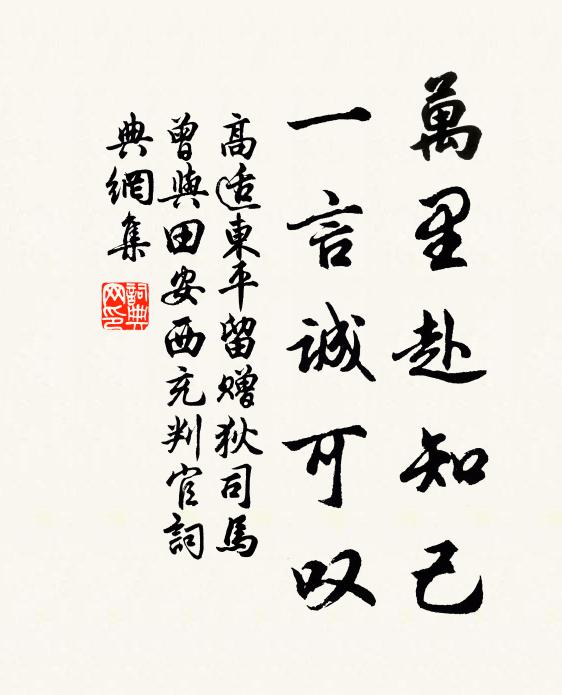 萬里赴知己
一言誠可叹
高适東平留贈狄司馬
曾與田安西充判官詞
典網集
詞典
网印